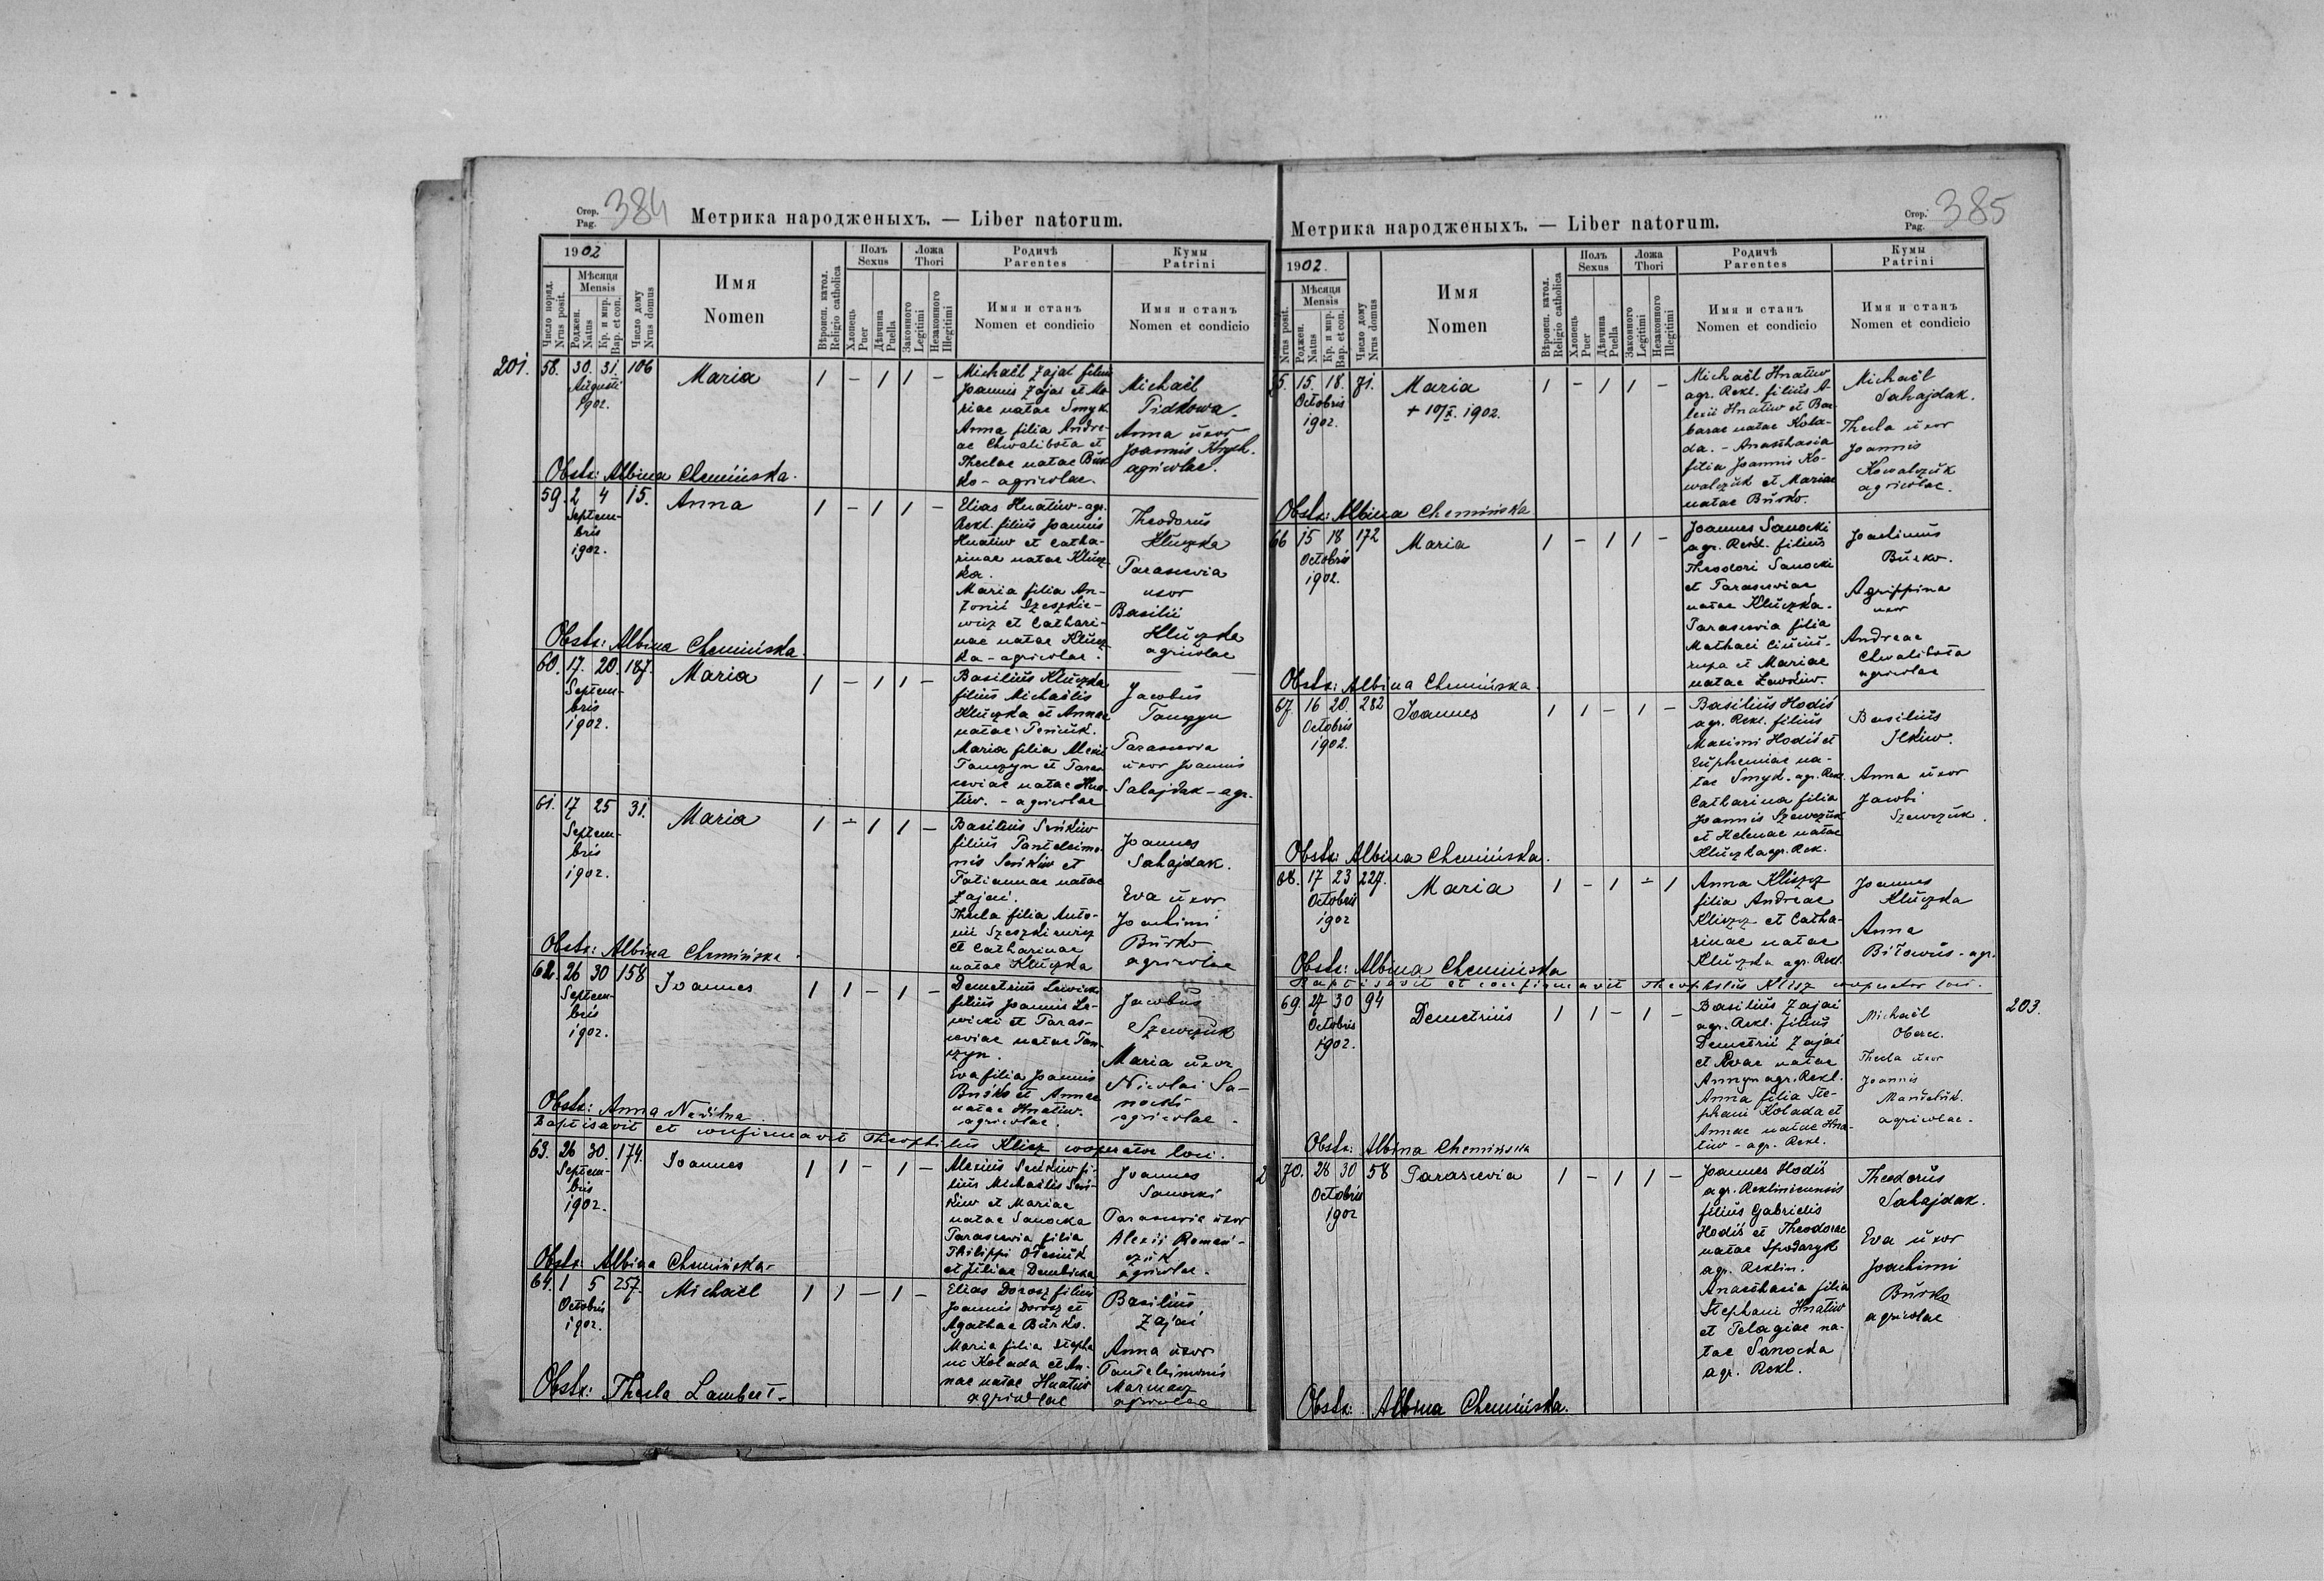 Стор.
Pag. 384
Метрика народженыхъ. — Liber natorum.
1902
Число поряд.
Nrus posit.
Мѣсяця
Mensis
Роджен.
Natus
Кр. и мпр.
Bap. et con.
Число дому
Nrus domus
Имя
Nomen
Вѣроисп. катол.
Religio catholica
Полъ
Sexus
Хлопець
Puer
Дѣвчина
Puella
Ложа
Thori
Законного
Legitimi
Незаконного
Illegitimi
Родичѣ
Parentes
Имя и станъ
Nomen et condicio
Кумы
Patrini
Имя и станъ
Nomen et condicio
201.
58. 30. 31. 106 Maria 1 — 1 1 —
Augusti
1902.
Michaël Zajac filius
Joannis Zajac et Ma-
riae natae Smyk
Anna filia Andre-
ae Chwalibota et
Theclae natae Burk-
ko - agricolae.
Michaël
Pidkowa.
Anna uxor
Joannis Kruch.
agricolae.
Obstx: Albina Chemińska.
59. 2 4 15. Anna 1 — 1 1 —
Septem-
bris
1902.
Elias Hnatiw - agr.
Rekl. filius Joannis
Hnatiw et Catha-
rinae natae Klucz-
ka.
Maria filia An-
tonii Szeszkie-
wicz et Cathari-
nae natae Klucz-
ka - agricolae.
Theodorus
Kluczka
Parascevia
uxor
Basilii
Kluczka
agricolae
Obstx: Albina Chemińska.
60. 17. 20. 187. Maria 1 — 1 1 —
Septem-
bris
1902.
Basilius Kluczka
filius Michaëlis
Kluczka et Annae
natae Peńuk.
Maria filia Alexii
Tanczyn et Paras-
ceviae natae Hna-
tiw. - agricolae
Jacobus
Tanczyn
Parascevia
uxor Joannis
Sahajdak - agr.
61. 17 25 31. Maria 1 — 1 1 —
Septem-
bris
1902.
Basilius Seńkiw
filius Panteleimo-
nis Seńkiw et
Tatiannae natae
Zajac.
Thecla filia Anto-
nii Szeszkiewicz
et Catharinae
natae Kluczka
Joannes
Sahajdak.
Eva uxor
Joachimi
Burko
agricolae
Obstx: Albina Chemińska.
62. 26 30 158 Joannes 1 1 — 1 —
Septem-
bris
1902.
Demetrius Lewicki
filius Joannis Le-
wicki et Paras-
ceviae natae Tan-
czyn.
Eva filia Joannis
Burko et Annae
natae Hnatiw.
agricolae.
Jacobus
Szewczuk
Maria uxor
Nicolai Sa-
nocki
agricolae.
Obstx: Anna
Baptisavit et confirmavit Theophilus Klisz cooperator loci.
63. 26 30. 174. Joannes 1 1 — 1 —
Septem-
bris
1902.
Alexius Seńkiw fi-
lius Michaëlis Seń-
kiw et Mariae
natae Sanocka
Parascevia filia
Philippi Olesiuk
et Juliae Dembicka
Joannes
Sanocki
Parascevia uxor
Alexii Romań-
czuk
agricolae.
Obstx: Albina Chemińska.
64. 1 5 257. Michaël 1 1 — 1 —
Octobris
1902.
Elias Dorosz filius
Joannis Dorosz et
Agathae Burko.
Maria filia Stepha-
ni Kolada et An-
nae natae Hnatiw
agricolae
Basilius
Zajac
Anna uxor
Panteleimonis
Marmasz
agricolae
Obstx: Thecla Lambert.
Стор.
Pag. 385
Метрика народженыхъ. — Liber natorum.
1902.
Nrus posit.
Мѣсяця
Mensis
Роджен.
Natus
Кр. и мпр.
Bap. et con.
Число дому
Nrus domus
Имя
Nomen
Вѣроисп. катол.
Religio catholica
Полъ
Sexus
Хлопець
Puer
Дѣвчина
Puella
Ложа
Thori
Законного
Legitimi
Незаконного
Illegitimi
Родичѣ
Parentes
Имя и станъ
Nomen et condicio
Кумы
Patrini
Имя и станъ
Nomen et condicio
5. 15. 18. 71. Maria 1 — 1 1 —
Octobris
1902.
+ 10/X. 1902.
Michaël Hnatiw
agr. Rekl. filius A-
lexii Hnatiw et Bar-
barae natae Kola-
da. - Anasthasia
filia Joannis Ko-
walczuk et Mariae
natae Burko.
Michaël
Sahajdak.
Thecla uxor
Joannis
Kowalczuk
agricolae.
Obstx: Albina Chemińska
66 15 18 172 Maria 1 — 1 1 —
Octobris
1902.
Joannes Sanocki
agr. Rekl. filius
Theodori Sanocki
et Parasceviae
natae Kluczka.
Parascevia filia
Mathaei Ciuciu-
rupa et Mariae
natae Lewkiw.
Joachimus
Burko.
Agrippina
uxor
Andreae
Chwalibota
agricolae
Obstx: Albina Chemińska.
67. 16 20. 282 Joannes 1 1 — 1 —
Octobris
1902.
Basilius Hodiś
agr. Rekl. filius
Maximi Hodiś et
Euphemiae na-
tae Smyk - agr. Rekl.
Catharina filia
Joannis Szewczuk
et Helenae natae
Kluczka agr. Rek.
Basilius
Ilkiw.
Anna uxor
Jacobi
Szewczuk.
Obstx: Albina Chemińska.
68. 17 23 227. Maria 1 — 1 — 1
Octobris
1902
Anna Kliszcz
filia Andreae
Kliszcz et Catha-
rinae natae
Kluczka agr. Rekl.
Joannes
Kluczka
Anna
Biłowus - agr.
Obstx: Albina Chemińska
Baptisavit et confirmavit Theophilus Klisz cooperator loci.
69. 27 30 94 Demetrius 1 1 — 1 —
203.
Octobris
1902.
Basilius Zajac
agr. Rekl. filius
Demetrii Zajac
et Evae natae
Annyn agr. Rekl.
Anna filia Ste-
phani Kolada et
Annae natae Hna-
tiw - agr. Rekl.
Michaël
Oberek.
Thecla uxor
Joannis
Mandeluk.
agricolae.
Obstx: Albina Chemińska
2 70. 28 30 58 Parascevia 1 — 1 1 —
Octobris
1902
Joannes Hodiś
agr. Reklinecensis
filius Gabrielis
Hodiś et Theodorae
natae Spodaryk
agr. Reklin.
Anasthasia filia
Stephani Hnatiw
et Pelagiae na-
tae Sanocka
agr. Rekl.
Theodorus
Sahajdak.
Eva uxor
Joachimi
Burko
agricolae
Obstx: Albina Chemińska.